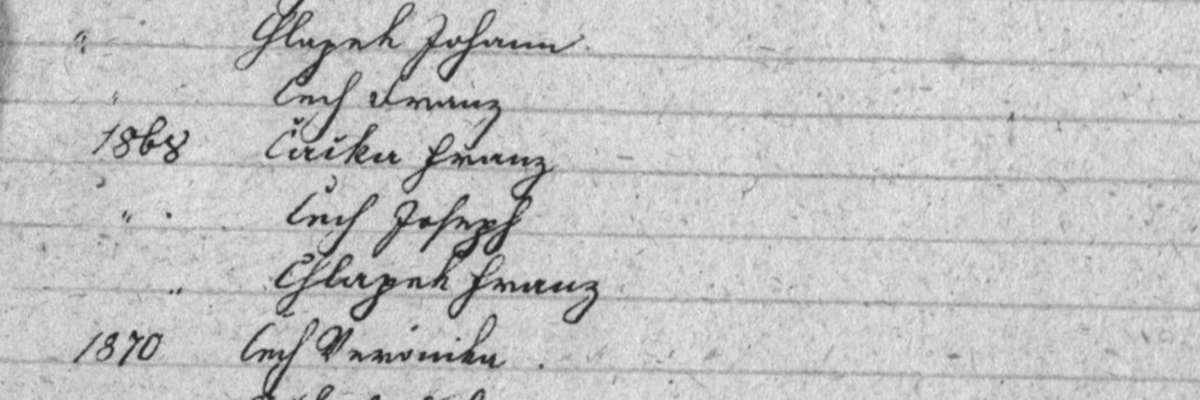 " Chlapek Johann
" Cech Franz
1868 Čačka Franz
" Čech Joseph
" Chlapek Franz
1870 Cech Veronika